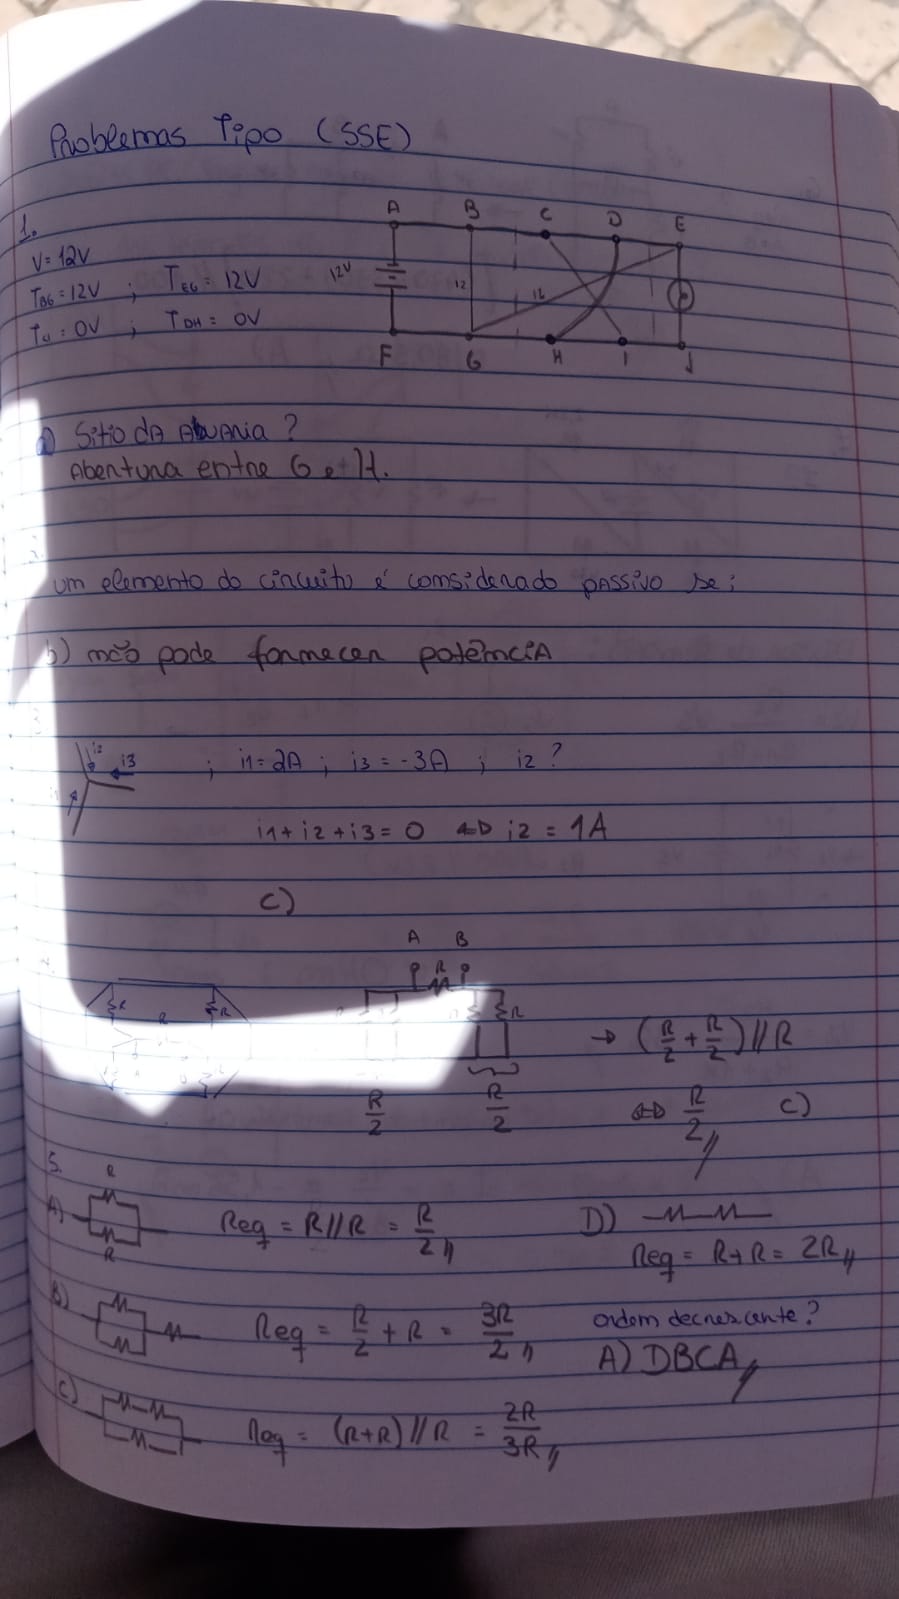 Problemas Tipo (SSE)
1.
V = 12V
TBG = 12V ; TEG = 12V
TCI = 0V ; TDH = 0V
A B C D E
12V 12 12
F G H I J
a) Sitio da Avaria ?
Abertura entre G e H.
um elemento do circuito é considerado passivo se;
b) não pode fornecer potência
3
i2 i3 ; i1 = 2A ; i3 = -3A ; i2 ?
i1
i1 + i2 + i3 = 0 ⇔ i2 = 1A
c)
A B
R
R R R R
→ (R/2 + R/2) // R
R/2 R/2 ⇔ R/2 // c)
5.
R
A) Req = R//R = R/2 // D)
R Req = R+R = 2R //
B) Req = R/2 + R = 3R/2 // ordem decrescente?
A) DBCA //
C) Req = (R+R) // R = 2R/3R //